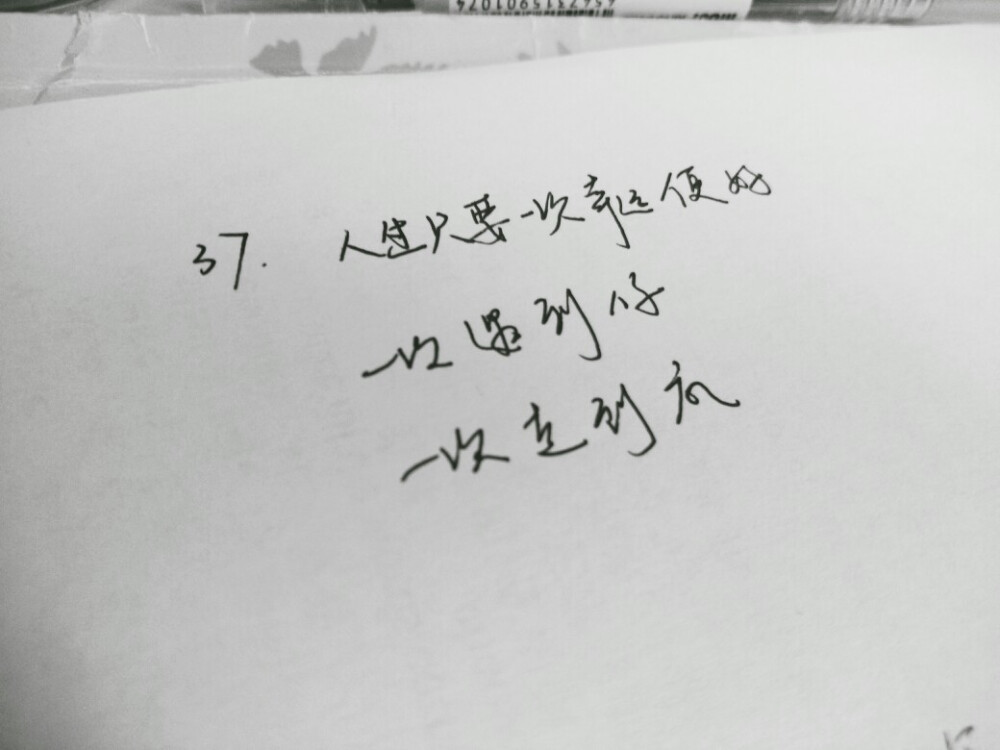 37. 人生只要一次幸运便好
一次遇到你
一次走到底